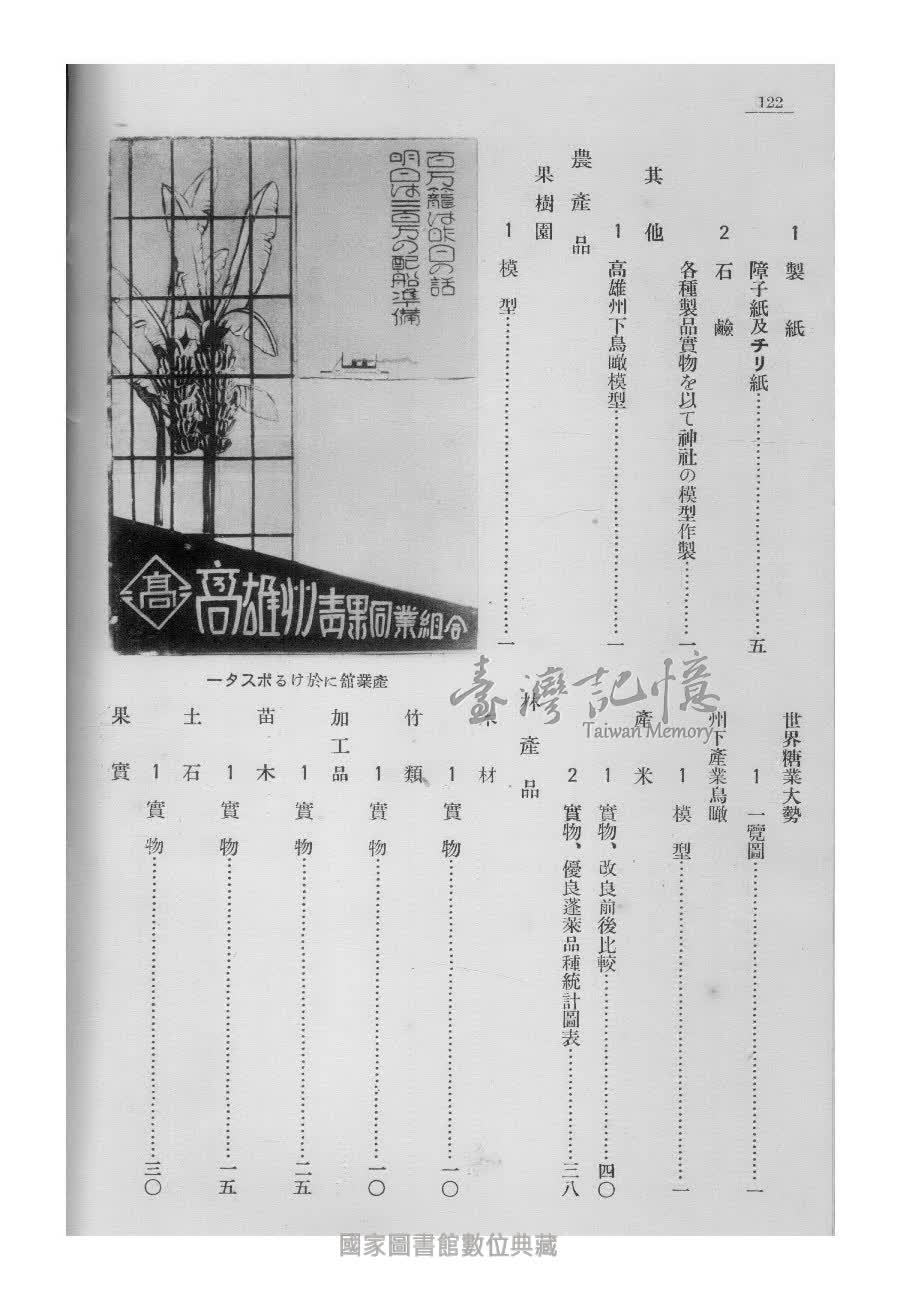 122
1 製紙
障子紙及チリ紙……五
2 石鹼
各種製品實物を以て神社の模型作製……一
其他
1 高雄州下鳥瞰模型……一
農產品
果樹園
1 模型……一
百万籠は昨日の話
明日は三百万の配船準備
高
高雄州青果同業組合
產業舘に於けるポスター
世界糖業大勢
1 一覽圖……一
州下產業鳥瞰
1 模型……一
產米
1 實物、改良前後比較……四〇
2 實物、優良蓬萊品種統計圖表……三八
林產品
木材
1 實物……一〇
竹類
1 實物……一〇
加工品
1 實物……二五
苗木
1 實物……一五
土石
果實
1 實物……三〇
臺灣記憶
Taiwan Memory
國家圖書館數位典藏